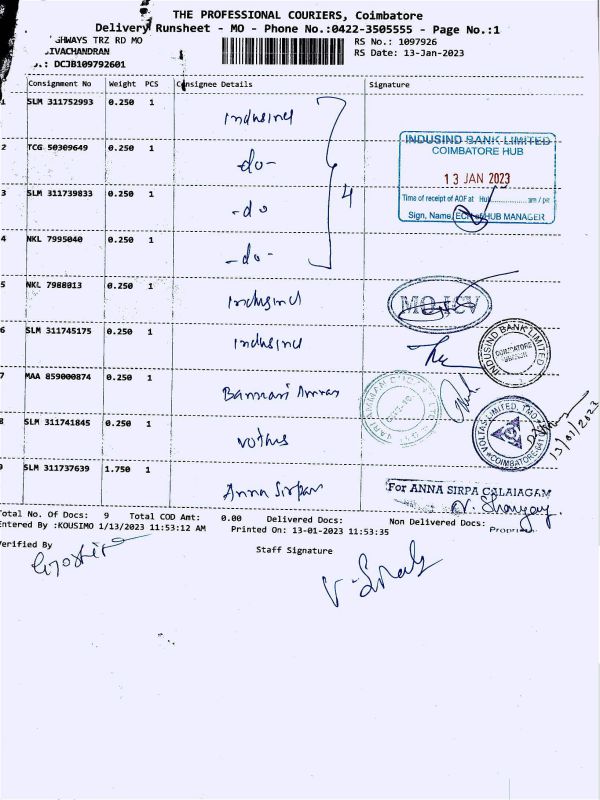 THE PROFESSIONAL COURIERS, Coimbatore
Delivery Runsheet - MO - Phone No.:0422-3505555 - Page No.:1
GHWAYS TRZ RD MO
RS No.: 1097926
IVACHANDRAN
RS Date: 13-Jan-2023
.: DCJB109792601
Consignment No Weight PCS Consignee Details Signature
1 SLM 311752993 0.250 1 Indusind
2 TCG 50309649 0.250 1 -do-
3 SLM 311739833 0.250 1 -do
4 NKL 7995040 0.250 1 -do-
4
INDUSIND BANK LIMITED
COIMBATORE HUB
13 JAN 2023
Time of receipt of AOF at Hub.............. am / pm
Sign, Name, of HUB MANAGER
5 NKL 7988013 0.250 1 Indusind
6 SLM 311745175 0.250 1 Indusind
INDUSIND BANK LIMITED
COIMBATORE
7 MAA 859000874 0.250 1 Bannari Amman
8 SLM 311741845 0.250 1
VOLTAS LIMITED,
COIMBATORE-641
13/01/2023
9 SLM 311737639 1.750 1 Anna Sirpam
For ANNA SIRPA CALAIAGAM
Total No. Of Docs: 9 Total COD Amt: 0.00 Delivered Docs: Non Delivered Docs:
Entered By :KOUSIMO 1/13/2023 11:53:12 AM Printed On: 13-01-2023 11:53:35
Verified By Staff Signature